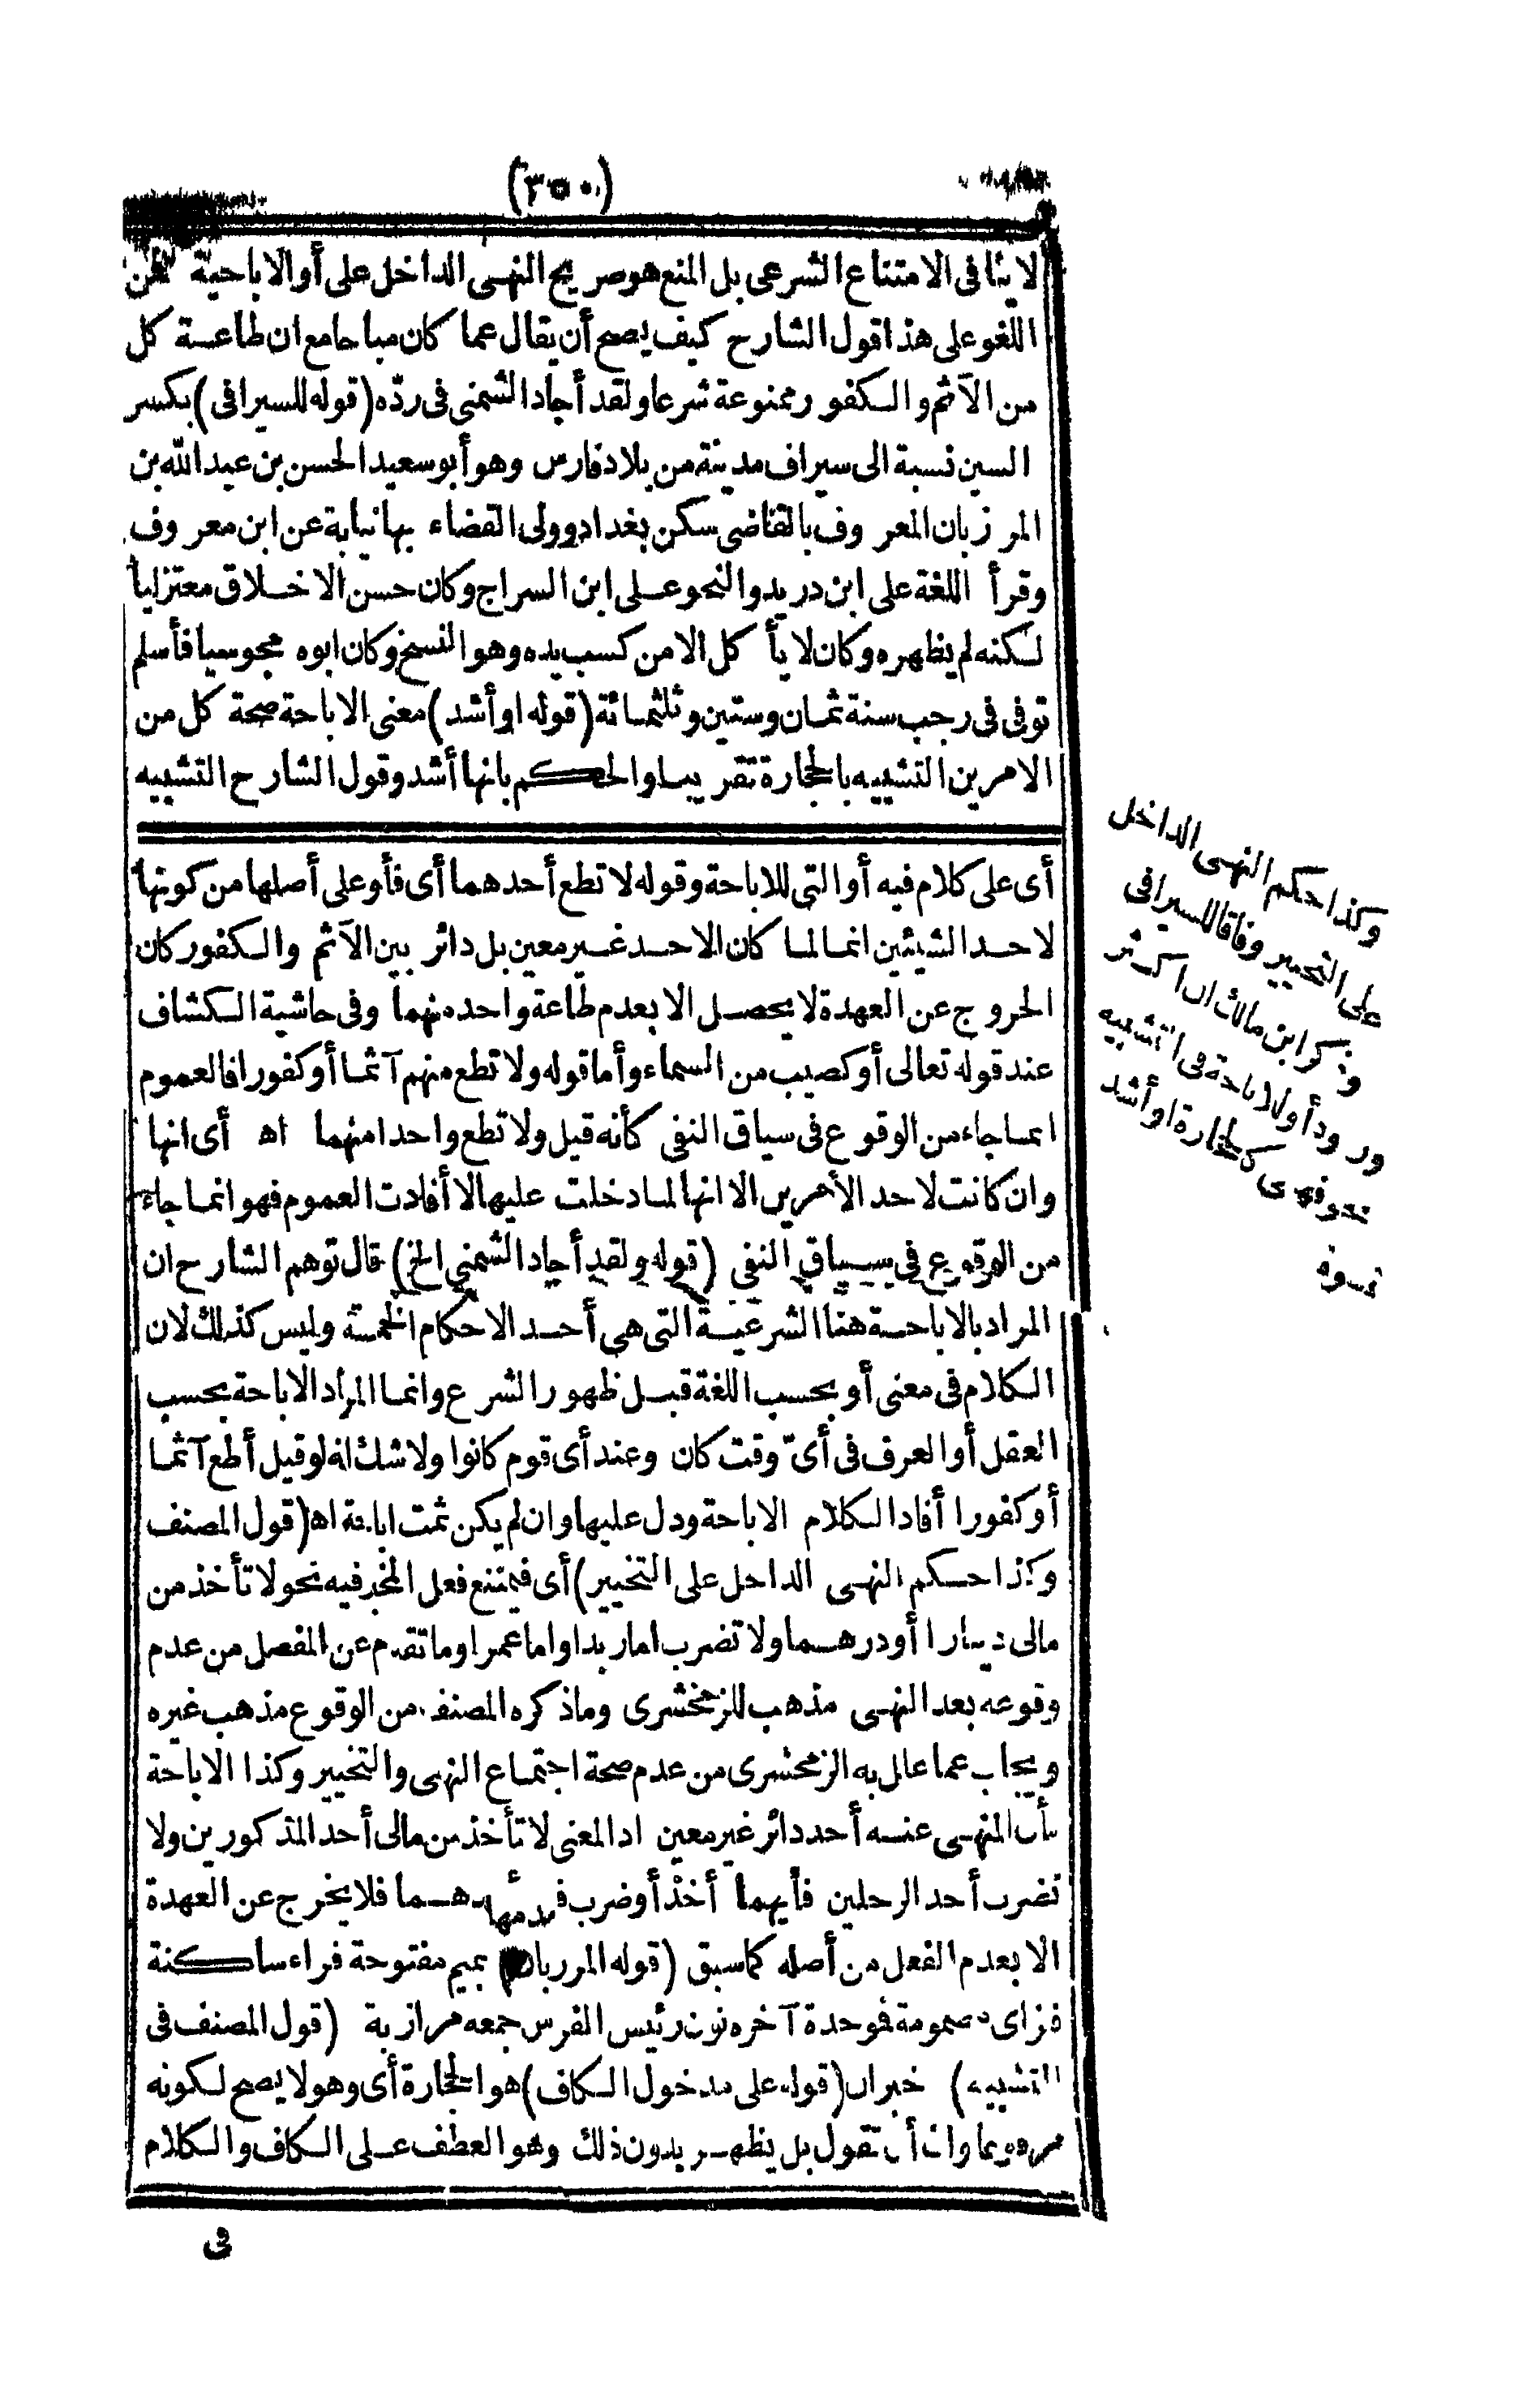 (٣٥٠)
لا ينافى الامتناع الشرعى بل المنع هو صريح النهى الداخل على أو الاباحية فمن
اللغو على هذا قول الشارح كيف يصح أن يقال عما كان مباحا مع ان طاعة كل
من الآثم والكفور ممنوعة شرعا ولقد أجاد الشمنى فى ردّه (قوله للسيرافى) بكسر
السين نسبة الى سيراف مدينة من بلاد فارس وهو أبو سعيد الحسن بن عبد الله بن
المرزبان المعروف بالقاضى سكن بغداد وولى القضاء بها نيابة عن ابن معروف
وقرأ اللغة على ابن دريد والنحو على ابن السراج وكان حسن الاخلاق معتزليا
لكنه لم يظهره وكان لا يأكل الا من كسب يده وهو النسخ وكان ابوه مجوسيا فأسلم
توفى فى رجب سنة ثمان وستين وثلثمائة (قوله او أشد) معنى الاباحة صحة كل من
الامرين التشبيه بالحجارة تقريبا والحكم بانها أشد وقول الشارح التشبيه
أى على كلام فيه أو التى للاباحة وقوله لا تطع أحدهما أى فأو على أصلها من كونها
لاحد الشيئين انما لما كان الاحد غير معين بل دائر بين الآثم والكفور كان
الخروج عن العهدة لا يحصل الا بعدم طاعة واحد منهما وفى حاشية الكشاف
عند قوله تعالى أو كصيب من السماء وأما قوله ولا تطع منهم آثما أو كفورا فالعموم
انما جاء من الوقوع فى سياق النفى كأنه قيل ولا تطع واحدا منهما اه أى انها
وان كانت لاحد الأمرين الا انها لما دخلت عليها لا أفادت العموم فهو انما جاء
من الوقوع فى سياق النفى (قوله ولقد أجاد الشمنى الخ) قال توهم الشارح ان
المراد بالاباحة هنا الشرعية التى هى أحد الاحكام الخمسة وليس كذلك لان
الكلام فى معنى أو بحسب اللغة قبل ظهور الشرع وانما المراد الاباحة بحسب
العقل أو العرف فى أىّ وقت كان وعند أى قوم كانوا ولا شك انه لو قيل أطع آثما
أو كفورا أفاد الكلام الاباحة ودل عليها وان لم يكن ثمت اباحة اه (قول المصنف
وكذا حكم النهى الداخل على التخيير) أى فيمتنع فعل المخير فيه نحو لا تأخذ من
مالى دينارا أو درهما ولا تضرب اما زيدا واما عمرا وما تقدم عن المفصل من عدم
وقوعه بعد النهى مذهب للزمخشرى وما ذكره المصنف من الوقوع مذهب غيره
ويجاب عما علل به الزمخشرى من عدم صحة اجتماع النهى والتخيير وكذا الاباحة
بأن المنهى عنه أحد دائر غير معين اذ المعنى لا تأخذ من مالى أحد المذكورين ولا
تضرب أحد الرجلين فأيهما أخذ أو ضرب هما فلا يخرج عن العهدة
الا بعدم الفعل من أصله كما سبق (قوله المرزبان) بميم مفتوحة فراء ساكنة
فزاى مضمومة فموحدة آخره نون رئيس الفرس جمعه مرازبة (قول المصنف فى
التشبيه) خبر ان (قوله على مدخول الكاف) هو الحجارة أى وهو لا يصح لكونه
أن تقول بل يظهر بدون ذلك وهو العطف على الكاف والكلام
فى
وكذا حكم النهى الداخل
على التخيير وفاقا للسيرافى
وذكر ابن مالك ان اكثر
ورود أو للاباحة فى التشبيه
نحو فهى كالحجارة او أشد
قسوة